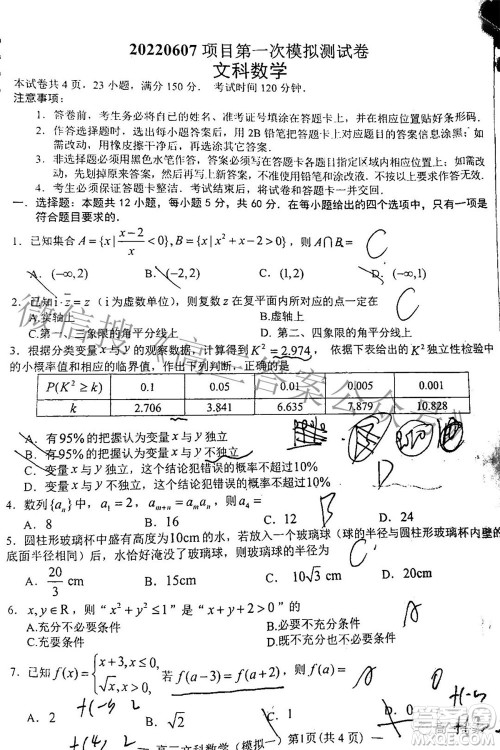 20220607 项目第一次模拟测试卷
文科数学
本试卷共4页，23小题，满分150分．考试时间120分钟．
注意事项：
1．答卷前，考生务必将自己的姓名、准考证号填涂在答题卡上，并在相应位置贴好条形码．
2．作答选择题时，选出每小题答案后，用2B铅笔把答题卡上对应题目的答案信息涂黑；如
需改动，用橡皮擦干净后，再选涂其它答案．
3．非选择题必须用黑色水笔作答，答案必须写在答题卡各题目指定区域内相应位置上，如需
改动，先划掉原来答案，然后再写上新答案，不准使用铅笔和涂改液．
4．考生必须保证答题卡整洁．考试结束后，将试卷和答题卡一并交回．
一．选择题：本题共12小题，每小题5分，共60分．在每小题给出的四个选项中，只有一项是
符合题目要求的．
1．已知集合 A={x|(x-2)/x<0},B={x|x²+x-2>0}，则A∩B= C
A．(-∞,2) B．(-2,2) C．(1,2) D．(-1,2)
2．已知i·z̄=z（i为虚数单位），则复数z在复平面内所对应的点一定在
A.实轴上 B.虚轴上
C.第一、三象限的角平分线上 D.第二、四象限的角平分线上
3．根据分类变量x与y的观察数据，计算得到K²=2.974，依据下表给出的K²独立性检验中
的小概率值和相应的临界值，作出下列判断，正确的是
P(K²≥k) 0.1 0.05 0.01 0.005 0.001
k 2.706 3.841 6.635 7.879 10.828
A．有95%的把握认为变量x与y独立
B．有95%的把握认为变量x与y不独立
C．变量x与y独立，这个结论犯错误的概率不超过10%
D．变量x与y不独立，这个结论犯错误的概率不超过10%
D
4．数列{aₙ}中，a₁=2，aₘ₊ₙ=aₘaₙ，则a₄= B
A．8 B．16 C．12 D．24
5．圆柱形玻璃杯中盛有高度为10cm的水，若放入一个玻璃球（球的半径与圆柱形玻璃杯内壁的
底面半径相同）后，水恰好淹没了玻璃球，则玻璃球的半径为
A．20/3 cm B．15cm C．10√3 cm D．20cm
6．x,y∈R，则“x²+y²≤1”是“x+y+2>0”的 A
A.充分不必要条件 B.必要不充分条件
C.充要条件 D.既不充分也不必要条件
7．已知f(x)={x+3,x≤0, √x,x>0, 若f(a-3)=f(a+2)，则f(a)= A
A．2 B．√2 C．1 D．0
高三文科数学（模拟一） 第1页(共4页)
微信搜《高三答案公众号》